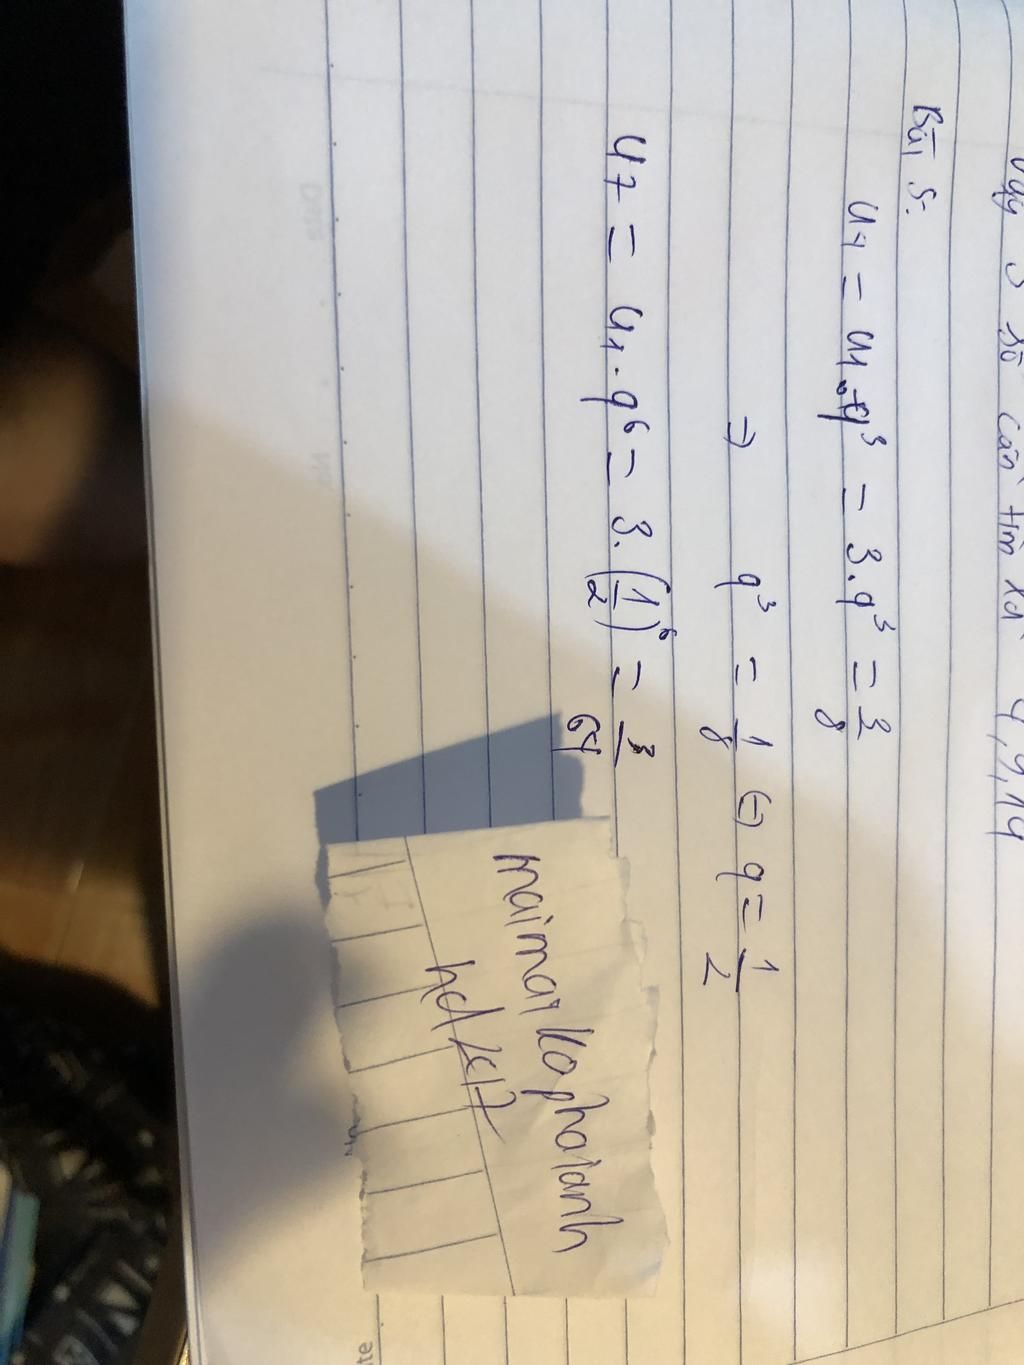 Vậy 3 số cần tìm là 4,9,14
Bài 5:
u4 = u1.q³ = 3.q³ = 3/8
⇒ q³ = 1/8 ⇔ q = 1/2
u7 = u1.q⁶ = 3.(1/2)⁶ = 3/64
maimaikophaianh